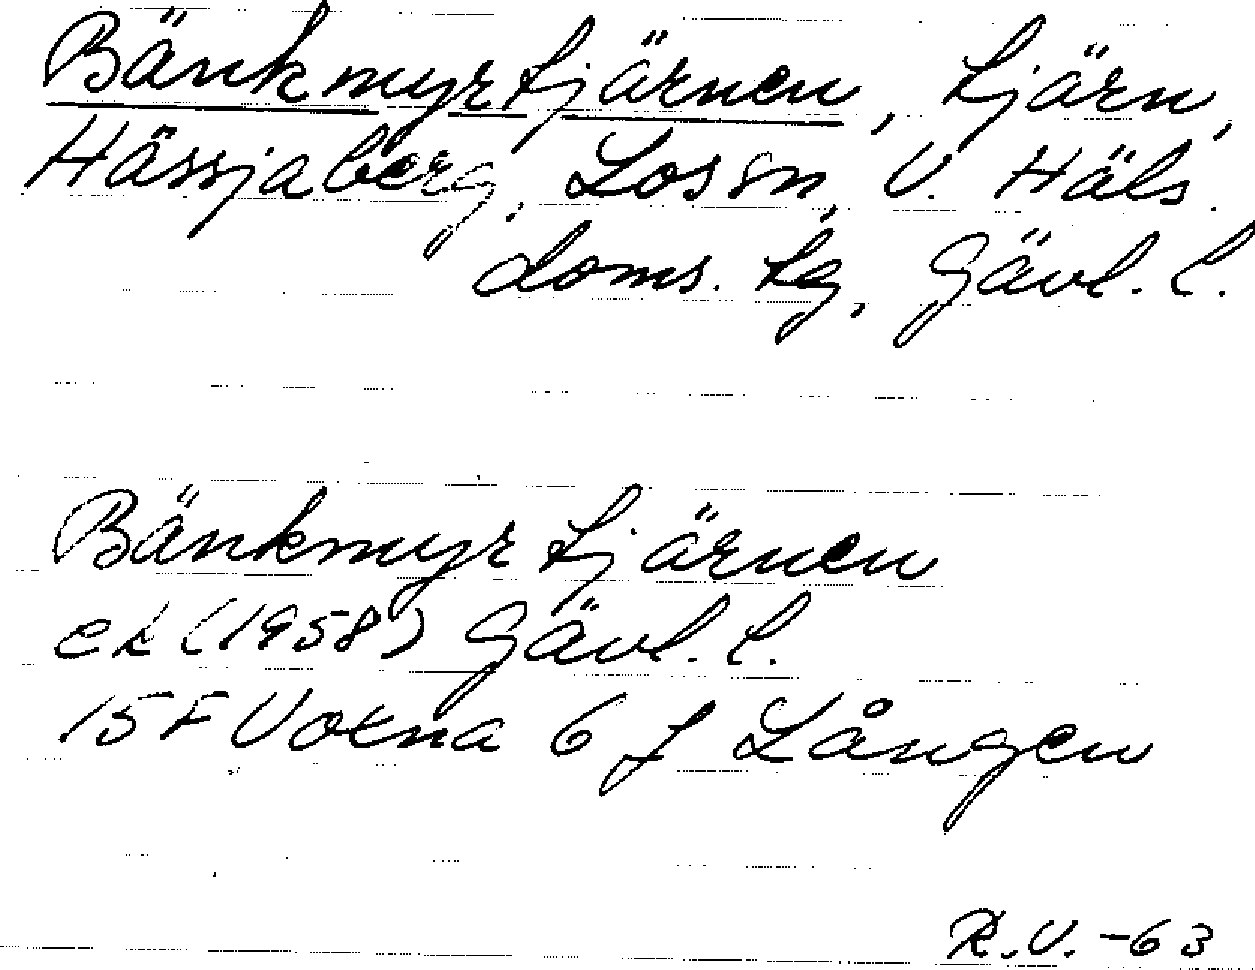 Bänkmyrtjärnen, tjärn,
Hässjaberg, Los sn, V. Häls.
doms. lg, Gävl. l.
Bänkmyrtjärnen
ek (1958) Gävl. l.
15F Votna 6 f Lången
R.V. -63